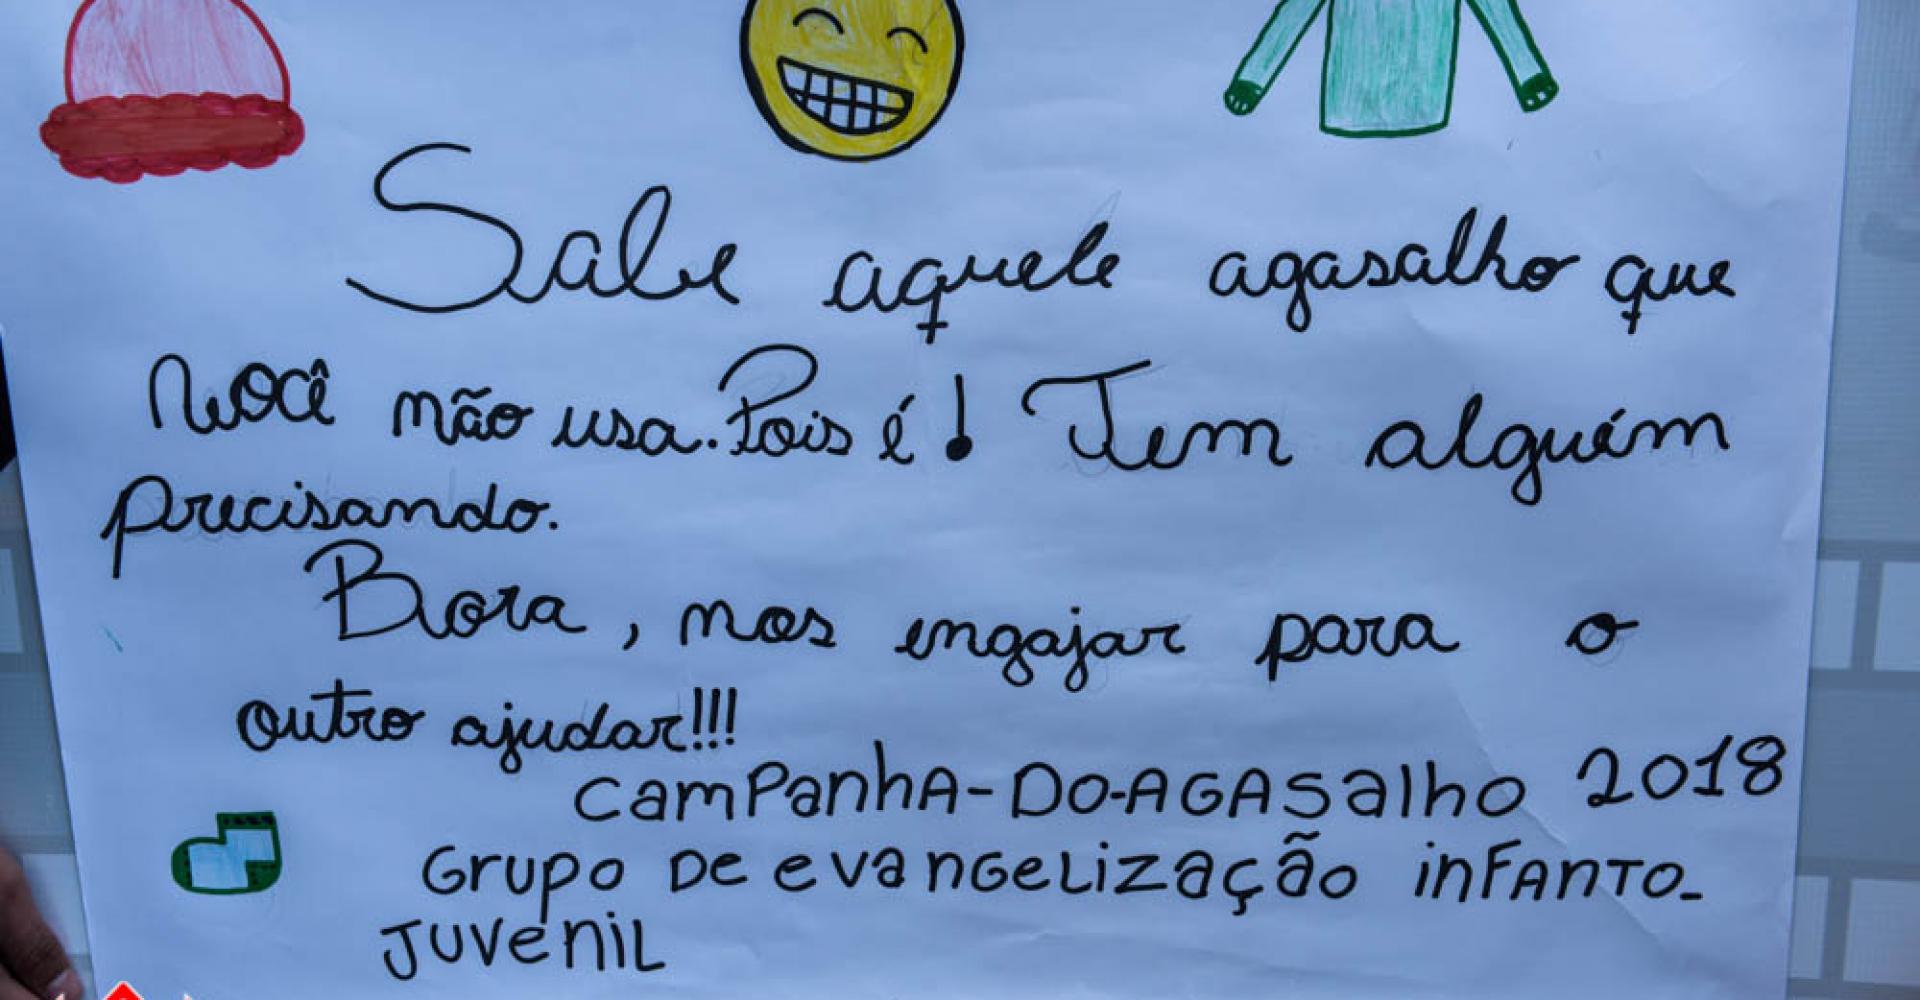 Sabe aquele agasalho que
você não usa. Pois é! Tem alguém
precisando.
Bora, nos engajar para o
outro ajudar!!!
Campanha-DO-AGASalho 2018
Grupo De evangelização infanto-
Juvenil